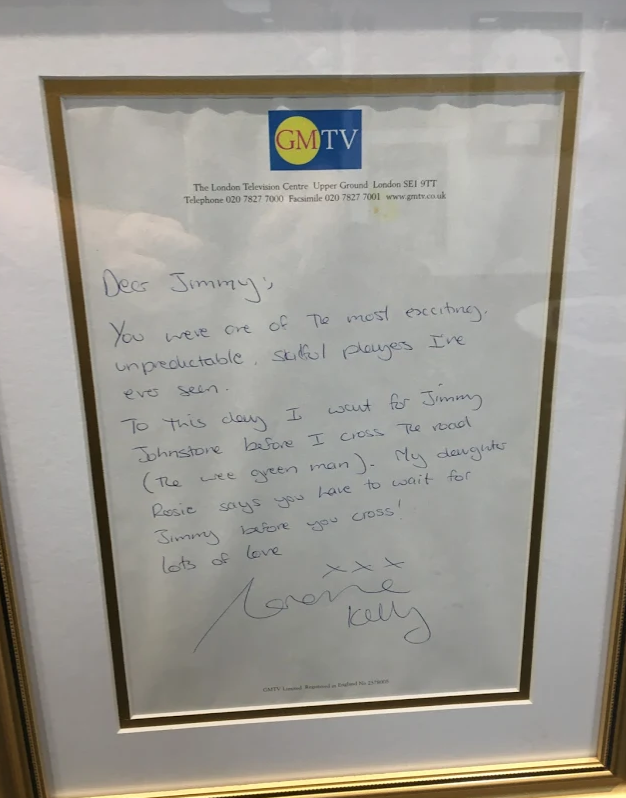 GMTV
The London Television Centre Upper Ground London SE1 9TT
Telephone 020 7827 7000 Facsimile 020 7827 7001 www.gmtv.co.uk
Dear Jimmy,
You were one of the most exciting,
unpredictable, skilful players I've
ever seen.
To this day I wait for Jimmy
Johnstone before I cross the road
(The wee green man). My daughter
Rosie says you have to wait for
Jimmy before you cross!
Lots of love
xxx
Lorraine
Kelly
GMTV Limited Registered in England No